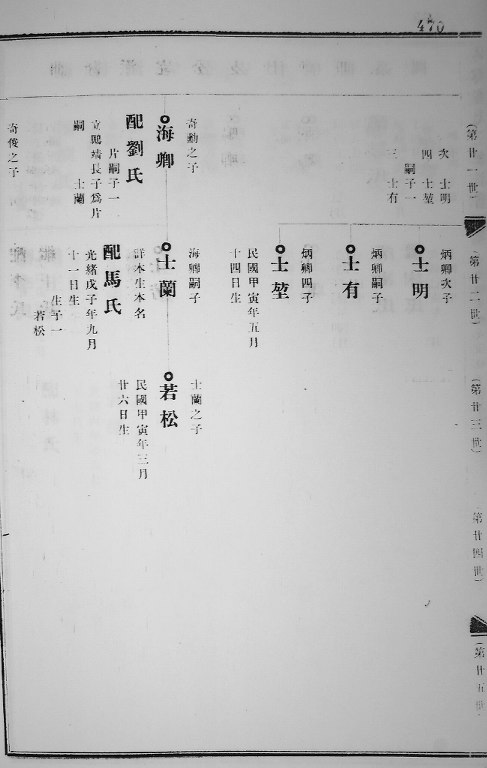 470
(第廿一世)
(第廿二世)
(第廿三世)
第廿四世)
(第廿五世
次 士明
四 士堃
嗣子一
三 士有
奇勳之子
海卿
配劉氏
片嗣子一
立鵾靖長子爲片
嗣 士蘭
奇俊之子
炳卿次子
士明
炳卿嗣子
士有
炳卿四子
士堃
民國甲寅年五月
十四日生
海卿嗣子
士蘭
詳本生本名
配馬氏
光緒戊子年九月
十一日生
生子一
若松
士蘭之子
若松
民國甲寅年三月
廿六日生